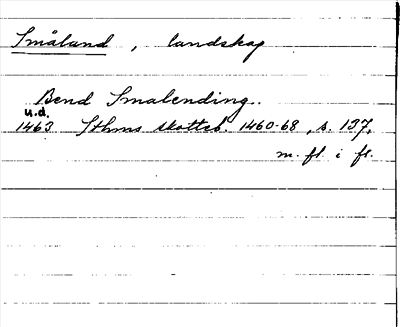 Småland, landskap
Bend Smalending.
u.d.
1463 Sthms skatteb. 1460-68, s. 137,
m. fl. i fr.